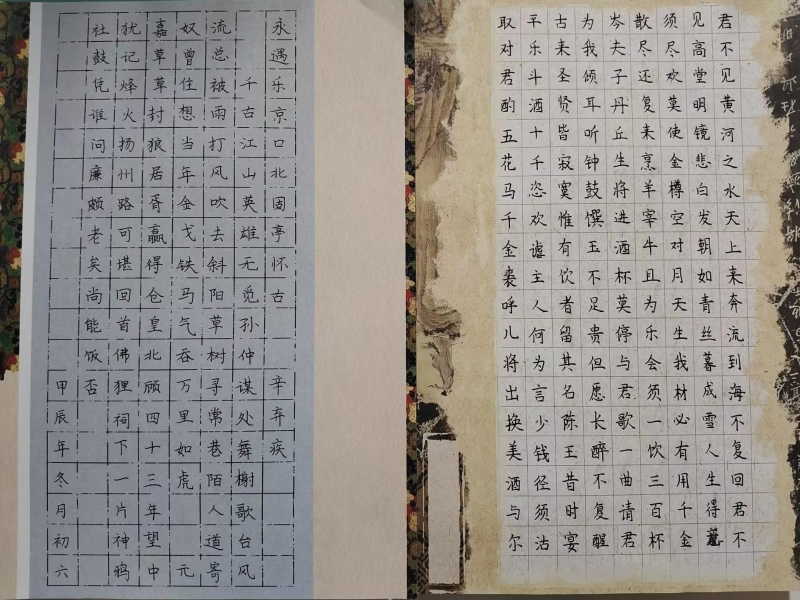 永遇乐京口北固亭怀古 辛弃疾
千古江山英雄无觅孙仲谋处舞榭歌台风
流总被雨打风吹去斜阳草树寻常巷陌人道寄
奴曾住想当年金戈铁马气吞万里如虎 元
嘉草草封狼居胥赢得仓皇北顾四十三年望中
犹记烽火扬州路可堪回首佛狸祠下一片神鸦
社鼓凭谁问廉颇老矣尚能饭否
甲辰年冬月初六
君不见黄河之水天上来奔流到海不复回君不
见高堂明镜悲白发朝如青丝暮成雪人生得
须尽欢莫使金樽空对月天生我材必有用千金
散尽还复来烹羊宰牛且为乐会须一饮三百杯
岑夫子丹丘生将进酒杯莫停与君歌一曲请君
为我倾耳听钟鼓馔玉不足贵但愿长醉不复醒
古来圣贤皆寂寞惟有饮者留其名陈王昔时宴
平乐斗酒十千恣欢谑主人何为言少钱径须沽
取对君酌五花马千金裘呼儿将出换美酒与尔